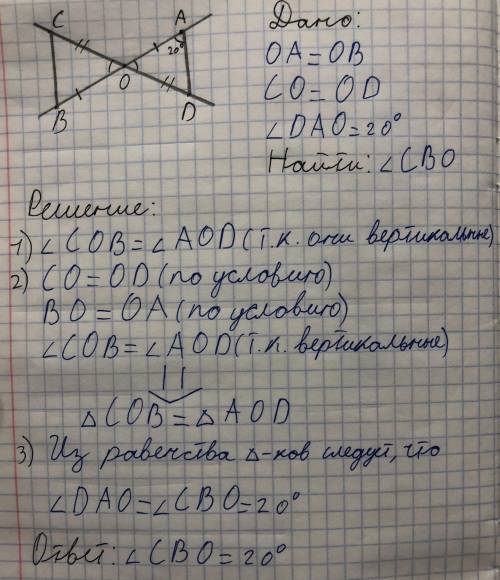 C
A
20°
O
B
D
Дано:
OA=OB
CO=OD
∠DAO=20°
Найти: ∠CBO
Решение:
1) ∠COB=∠AOD (т.к. они вертикальные)
2) CO=OD (по условию)
BO=OA (по условию)
∠COB=∠AOD (т.к. вертикальные)
△COB=△AOD
3) Из равенства △-ков следует, что
∠DAO=∠CBO=20°
Ответ: ∠CBO=20°